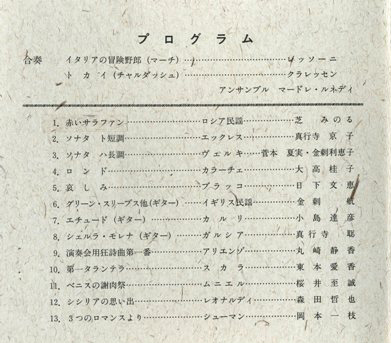 プログラム
合奏 イタリアの冒険野郎（マーチ）……………………リッソーニ
トカイ（チャルダッシュ）……………………クラレッセン
アンサンブル マードレ・ルネディ
1. 赤いサラファン……………………ロシア民謡……………………芝 みのる
2. ソナタ ト短調……………………エックレス……………………真行寺 京子
3. ソナタ ハ長調……………………ヴェルキ……菅本 夏実・金刺利恵子
4. ロンド……………………カラーチェ……………………大高桂子
5. 哀しみ……………………ブラッコ……………………日下文恵
6. グリーン・スリーブス他(ギター)……………イギリス民謡……………………金刺 
7. エチュード（ギター）……………………カルリ……………………小島達彦
8. シェルラ・モレナ（ギター）……………ガルシア……………………真行寺 聡
9. 演奏会用狂詩曲第一番……………………アリエンゾ……………………丸崎静香
10. 第一タランテラ……………………スカラ……………………東本愛香
11. ベニスの謝肉祭……………………ムニエル……………………桜井至誠
12. シシリアの思い出……………………レオナルディ……………………森田哲也
13. 3つのロマンスより……………………シューマン……………………岡本一枝